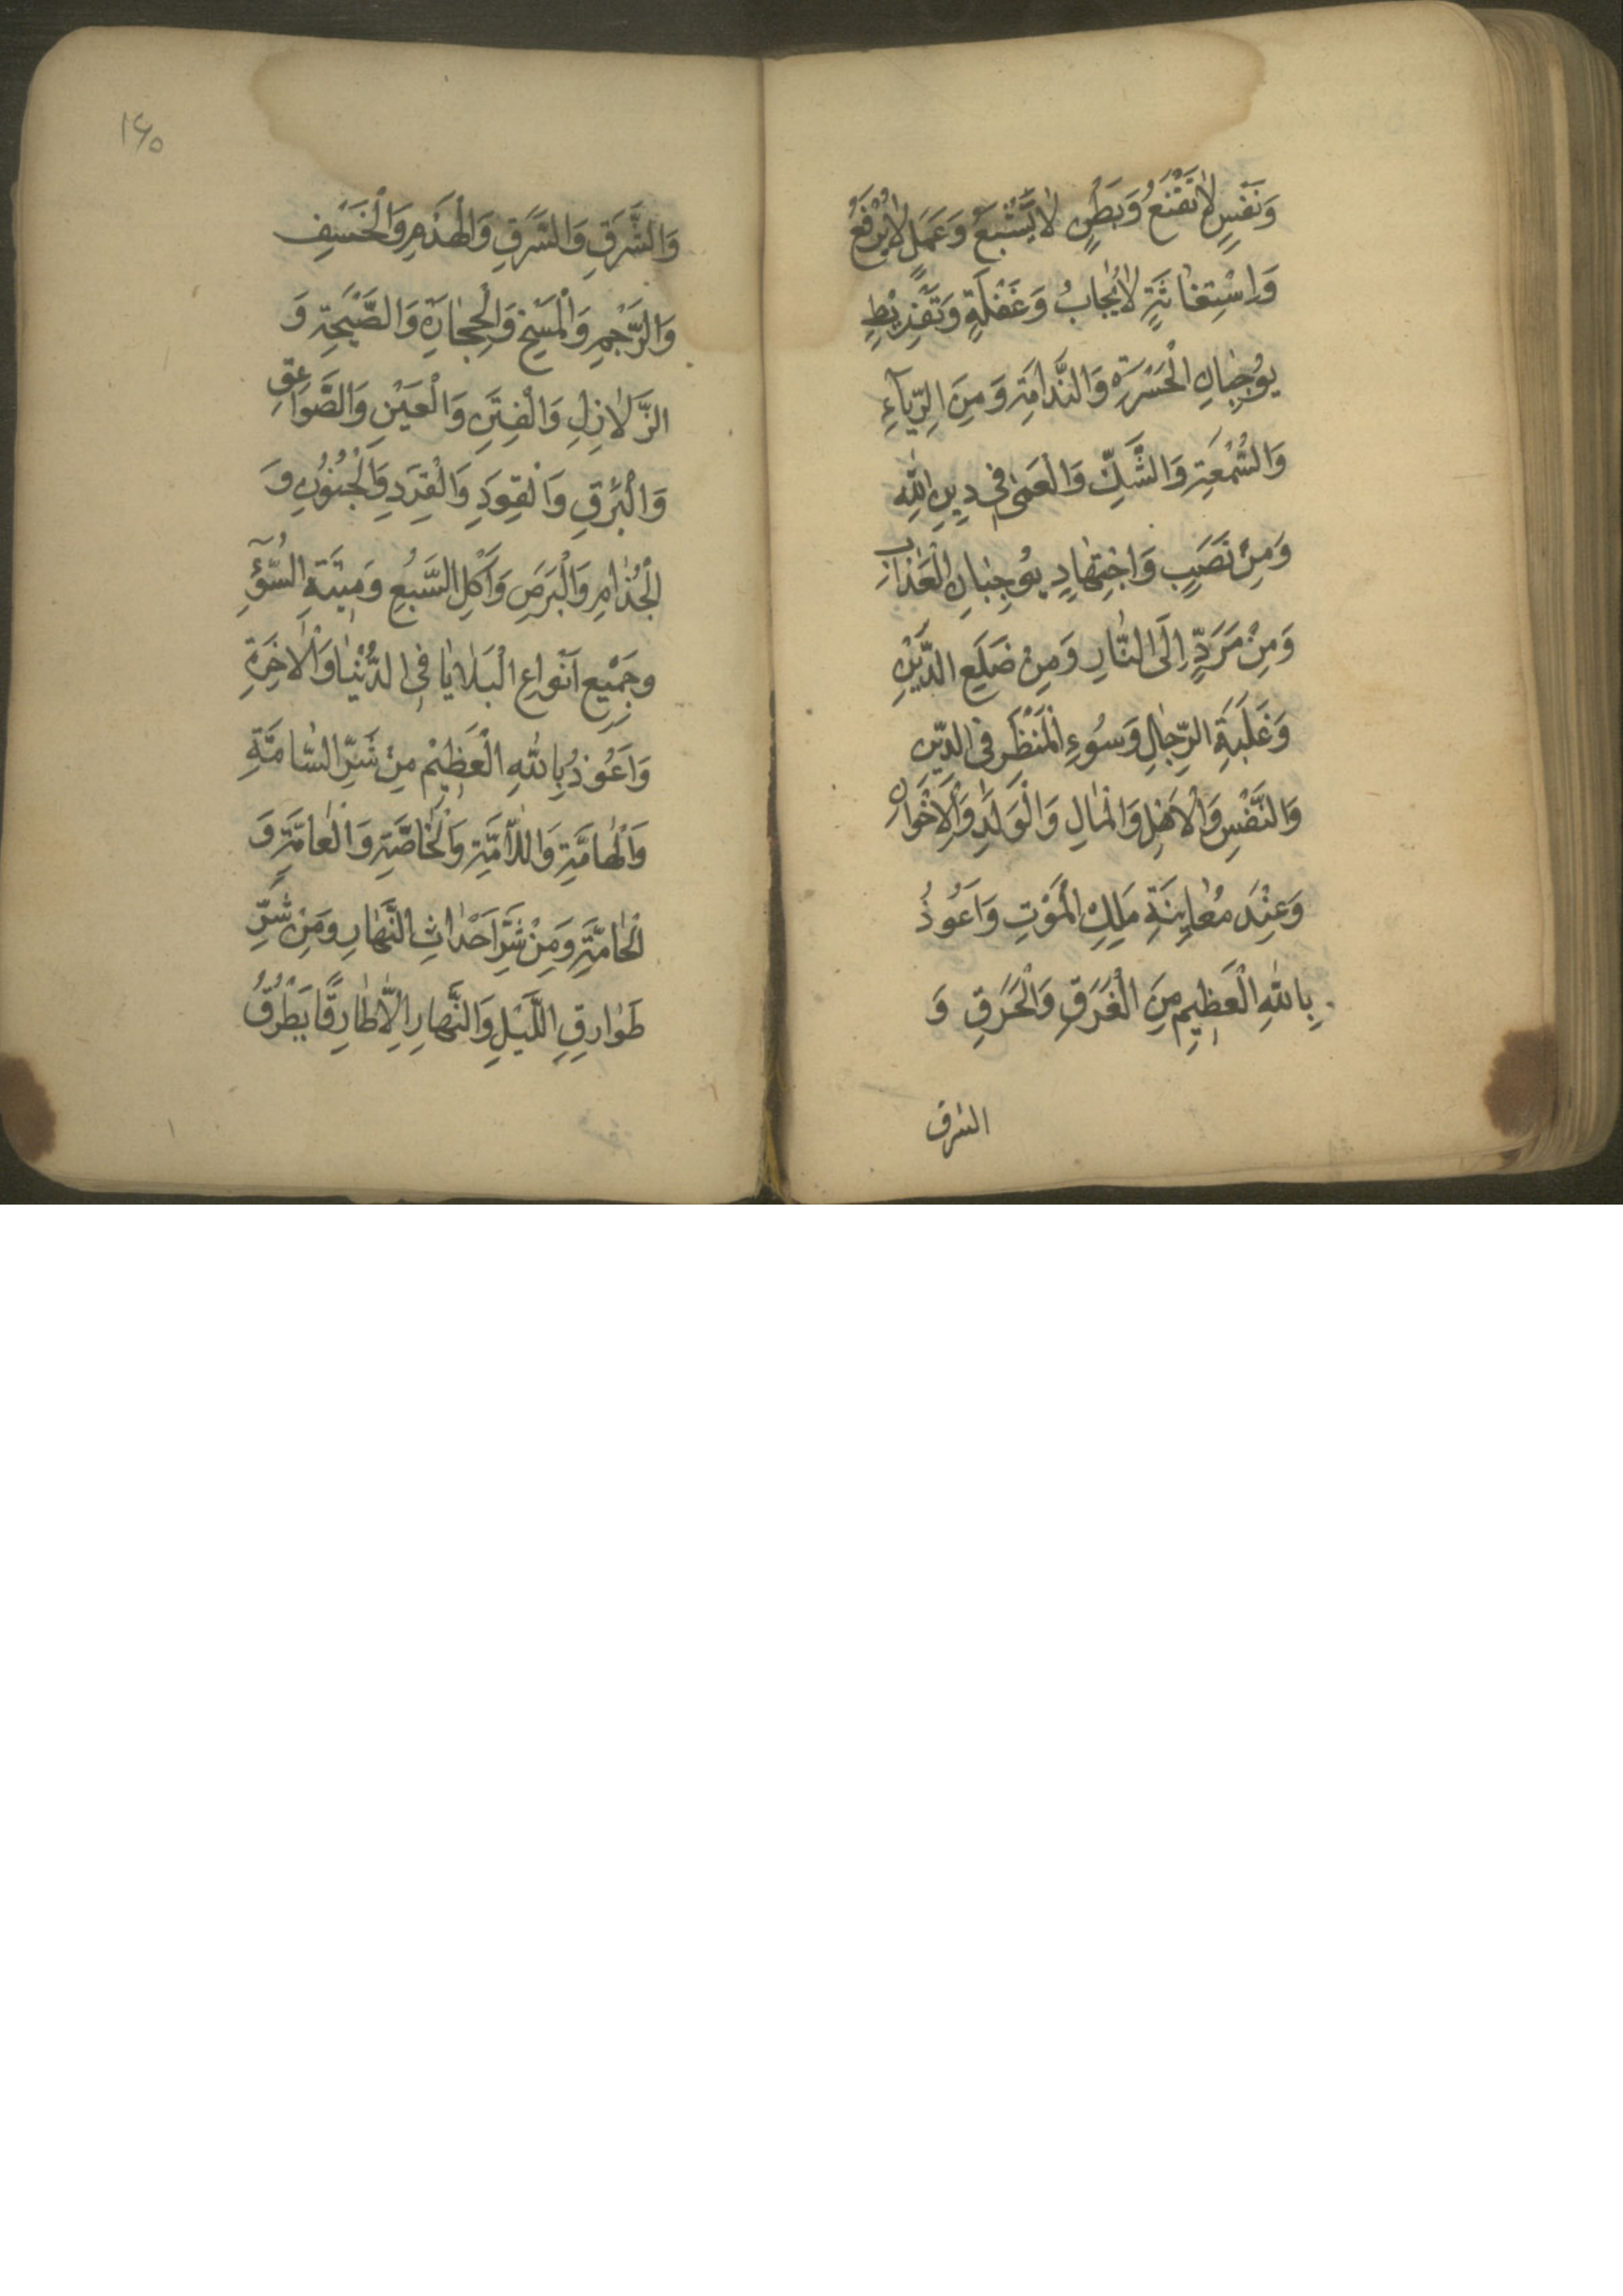 وَنَفْسٍ لَا تَقْنَعُ وَبَطْنٍ لَا يَشْبَعُ وَعَمَلٍ لَا يُرْفَعُ
وَاسْتِغَاثَةٍ لَا يُجَابُ وَغَفْلَةٍ وَتَفْرِيطٍ
يُوجِبَانِ الْحَسْرَةَ وَالنَّدَامَةِ وَمِنَ الرِّيَآءِ
وَالسُّمْعَةِ وَالشَّكِّ وَالْعَمىٰ فِي دِينِ اللّٰهِ
وَمِنْ نَصَبٍ وَاجْتِهَادٍ يُوجِبَانِ الْعَذَابَ
وَمِنْ مَرَدٍّ اِلَى النَّارِ وَمِنْ ضَلَعِ الدَّيْنِ
وَغَلَبَةِ الرِّجَالِ وَسُوءِ الْمَنْظَرِ فِي الدِّينِ
وَالنَّفْسِ وَالْاَهْلِ وَالْمَالِ وَالْوَلَدِ وَالْاِخْوَانِ
وَعِنْدَ مُعَايِنَةِ مَلَكِ الْمَوْتِ وَاَعُوذُ
بِاللّٰهِ الْعَظِيمِ مِنَ الْغَرَقِ وَالْحَرَقِ وَ
الشرق
١٤٥
وَالشَّرَقِ وَالسَّرَقِ وَالْهَدْمِ وَالْخَسْفِ
وَالرَّجْمِ وَالْمَسْخِ وَالْحِجَارَةِ وَالصَّيْحَةِ وَ
الزَّلَازِلِ وَالْفِتَنِ وَالْعَيْنِ وَالصَّوَاعِقِ
وَالْبَرْقِ وَالْقِوَدِ وَالْقِرَدِ وَالْجُنُونِ وَ
الْجُذَامِ وَالْبَرَصِ وَاَكْلِ السَّبُعِ وَمِيتَةِ السُّوٓءِ
وَجَمِيْعِ اَنْوَاعِ الْبَلَايَا فِي الدُّنْيَا وَالْاٰخِرَةِ
وَاَعُوذُ بِاللّٰهِ الْعَظِيْمِ مِنْ شَرِّ السَّامَّةِ
وَالْهَامَّةِ وَاللَّامَّةِ وَالْخَاصَّةِ وَالْعَامَّةِ وَ
الْحَامَّةِ وَمِنْ شَرِّ اَحْدَاثِ النَّهَارِ وَمِنْ شَرِّ
طَوَارِقِ اللَّيْلِ وَالنَّهَارِ اِلَّا طَارِقًا يَطْرُقُ